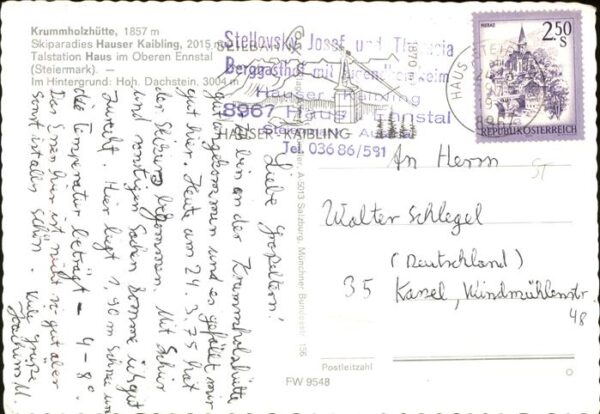 Krummholzhütte, 1857 m
Skiparadies Hauser Kaibling, 2015 m
Talstation Haus im Oberen Ennstal
(Steiermark). —
Im Hintergrund: Hoh. Dachstein, 3004 m
SEILBAHN
1870 m
HAUSER KAIBLING
Stellovsky Josef und Theresia
Berggasthof mit Jugendheim
Hauser Kaibling
8967 Haus Ennstal
Steiermark Austria
Tel. 03686/591
HAUS
8967
2.50
S
REPUBLIK ÖSTERREICH
Liebe Großeltern!
Ich bin an der Krummholzhütte
gut angekommen und es gefällt mir
gut hier. Heute am 24.3.75 hat
der Skikurs begonnen. Mit Skier
und sonstigen Sachen komme ich gut
zurecht. Hier liegt 1,90 m Schnee und
die Temperatur beträgt - 4-8°.
Das Essen hier ist nicht so gut aber
sonst ist alles schön. Viele Grüße
Joachim M.
A 5013 Salzburg, Münchner Bundesstr. 156
An Herrn
ST
Walter Schlegel
(Deutschland)
35 Kassel, Windmühlenstr.
48
Postleitzahl
FW 9548